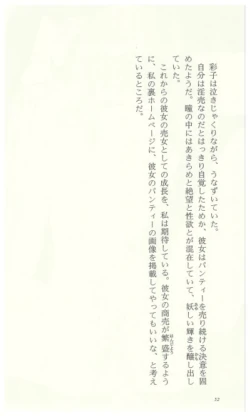 彩子は泣きじゃくりながら、うなずいていた。
自分は淫売なのだとはっきり自覚したためか、彼女はパンティーを売り続ける決意を固
めたようだ。瞳の中にはあきらめと絶望と性欲とが混在していて、妖しい輝きを醸し出し
ていた。
これからの彼女の売女としての成長を、私は期待している。彼女の商売が繁盛するよう
に、私の裏ホームページに、彼女のパンティーの画像を掲載してやってもいいな、と考え
ているところだ。
32